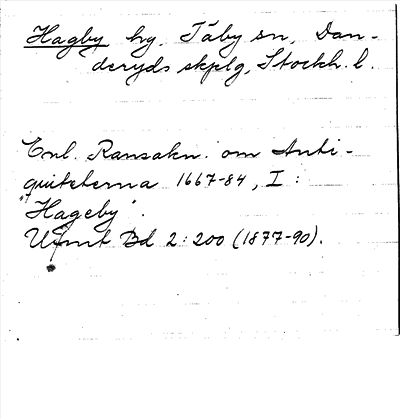 Hagby by, Täby sn, Dan-
deryds skplg, Stockh. l.
Enl. Ransakn. om Anti-
quiteterna 1667-84, I:
"Hageby".
Ufmt Bd 2:200 (1877-90).